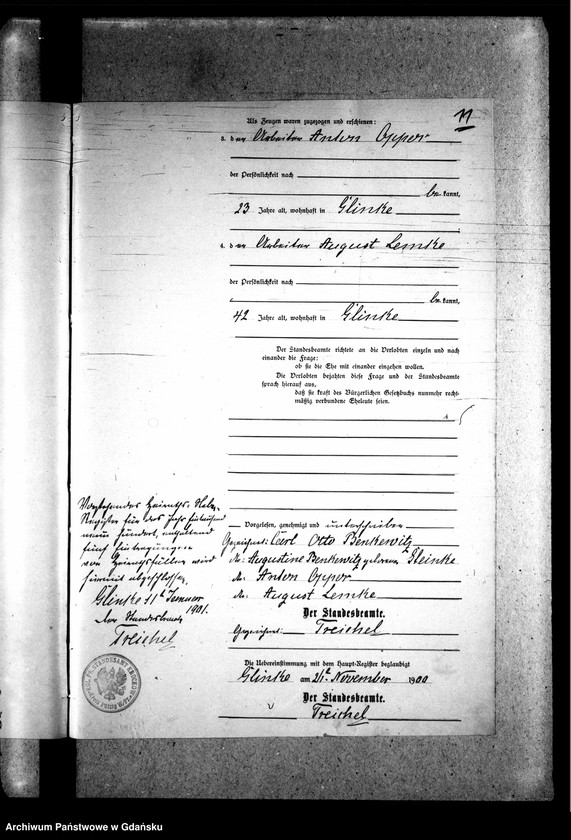 11
Als Zeugen waren zugezogen und erschienen:
3. der Arbeiter Anton Oppor
der Persönlichkeit nach
bekannt,
23 Jahre alt, wohnhaft in Glinke
4. der Arbeiter August Lemke
der Persönlichkeit nach
bekannt,
42 Jahre alt, wohnhaft in Glinke
Der Standesbeamte richtete an die Verlobten einzeln und nach
einander die Frage:
ob sie die Ehe mit einander eingehen wollen.
Die Verlobten bejahten diese Frage und der Standesbeamte
sprach hierauf aus,
daß sie kraft des Bürgerlichen Gesetzbuchs nunmehr recht-
mäßig verbundene Eheleute seien.
Vorgelesen, genehmigt und unterschrieben
Gezeichnet: Carl Otto Benkewitz
do: Augustine Benkewitz geborene Steinke
do: Anton Oppor
do: August Lemke
Der Standesbeamte.
Gezeichnet: Treichel
Die Uebereinstimmung mit dem Haupt-Register beglaubigt
Glinke am 21t November 1900
Der Standesbeamte.
Treichel
Vorstehendes Heiraths-Neben-
Register für das Jahr Eintausend
neun hundert, enthaltend
fünf Eintragungen
von Heirathsfällen wird
hiermit abgeschlossen
Glinke 11t Januar
1901.
Der Standesbeamte
Treichel
Archiwum Państwowe w Gdańsku